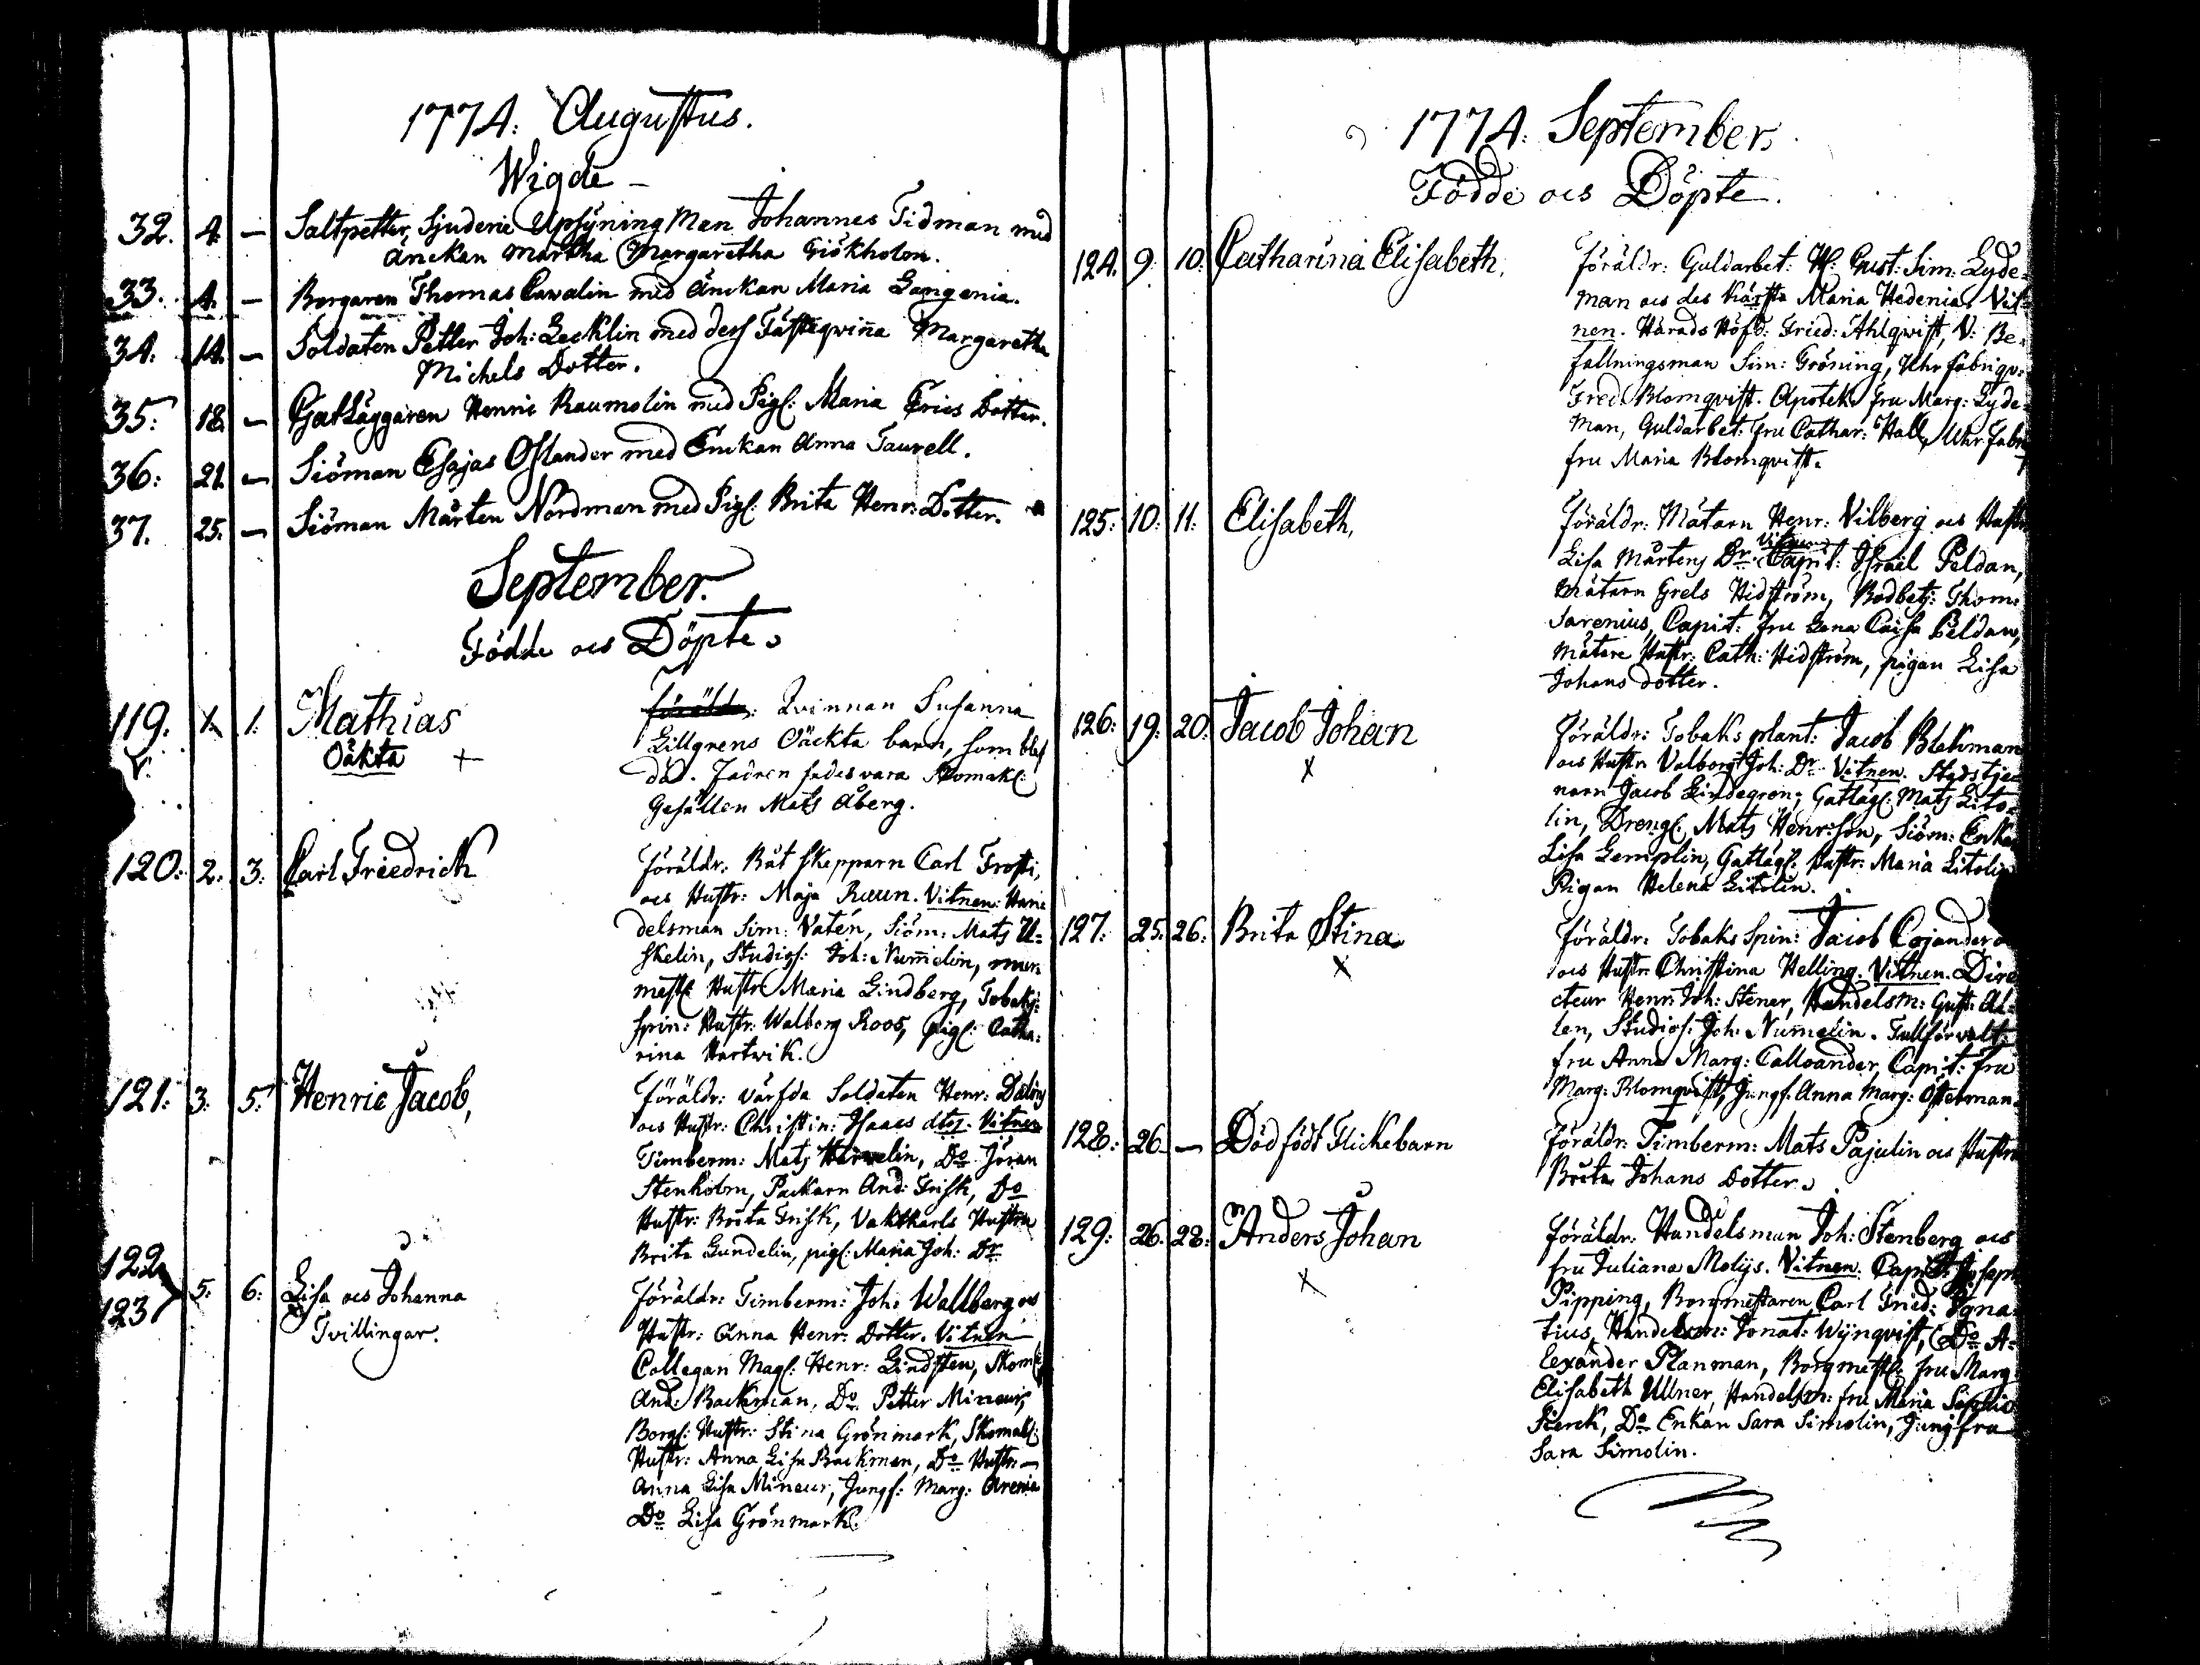 1774. Augustus.
Wigde –
32. 4. – Saltpetter Sjuderie Upsÿning Man Johannes Tidman med
Änckan Martha Margaretha Giökholm.
33. 4. – Borgaren Thomas Cavalin med Änckan Maria Gangenia.
34. 14. – Soldaten Petter Joh: Lecklin med dess Fästeqwiña Margaretha
Michels Dotter.
35. 18. – Gatläggaren Henric Raumolin med Pig: Maria Erics Dotter.
36: 21. – Siöman Esajas Oslander med Enckan Anna Taurell.
37. 25. – Siöman Mårten Nordman med Pig: Brita Henr: Dotter.
September.
Födde ocs Döpte.
119. 1. 1. Mathias
Oäkta +
Qvinnan Susanna
Lillgrens Oäckta barn, som blef
död. Fadren sades vara Skomak:
Gesällen Mats Åberg.
120. 2. 3. Carl Friedrich
Föräldr: Båt Skepparn Carl Trosti,
ocs Hustr: Maja Raun. Vitnen: Han
delsman Sim: Vatén, Siöm: Mats U=
skelin, Studios: Joh: Numelin, mur
mest: Hustr: Maria Lindberg, Tobaks:
spin: Hustr: Walborg Roos, pig: Catha:
rina Hartwik.
121. 3. 5. Henric Jacob,
Föräldr: värfda Soldaten Henr:
ocs Hustr: Christin: Isaacs dtr. Vitnen
Timberm: Mats Do Jöran
Stenholm, Packarn And: Frisk, Do
Hustr: Brita Frisk, Vaktkarls Hustru
Brita Gundelin, pig: Maria Joh: Dr
122
123 5. 6: Lisa ocs Johanna
Tvillingar.
Föräldr: Timberm: Joh: Wallberg ocs
Hustr: Anna Henr: Dotter. Vitnen
Collegan Mag: Henr: Lindsten, Skom:
And: Backman, Do Petter Mineur,
Borg: Hustr: Stina Grönmark, Skomak:
Hustr: Anna Lisa Backman, Do Hustr:
Anna Lisa Mineur, Jungf: Marg: Arenia
Do Lisa Grönmark.
1774. September.
Födde ocs Döpte.
124. 9. 10. Catharina Elisabeth,
Föräldr: Guldarbet: H: Gust: Sim: Lyde=
man ocs des Kärsta Maria Hedenia. Vit=
nen. Härads Höfd: Fried: Ahlqwist, V: Be=
fallningsman Sim: Gröning, Uhr fabriqv:
Fred: Blomqvist. Apotek: fru Marg: Lyde=
man, Guldarbet: fru Cathar: Hall, Uhr fabr
fru Maria Blomqvist.
125. 10. 11. Elisabeth,
Föräldr: Mätarn Henr: Vilberg ocs Hustr
Lisa Mårtens Dr. Vitnen Capit: Israel Peldan,
Mätarn Grels Hidström, Thom:
Sarenius, Capit: fru Lena Caisa Peldan,
Mätare Hustr: Cath: Hidström, pigan Lisa
Johans dotter.
126: 19. 20. Jacob Johan
x
Föräldr: Tobaks plant: Jacob Blekman
ocs Hustr: Valborg Joh: Dr Vitnen. Stadstje=
narn Jacob Lindegren, Gatläg: Mats Lito=
lin, Dreng: Mats Henr:son, Siöm: Enka
Lisa Gemplin, Gatläg: Hustr: Maria Litolin
Pigan Helena Litolin.
127: 25. 26. Brita Stina.
x
Föräldr: Tobaks Spin: Jacob Cojander
ocs Hustr: Christina Helling. Vitnen. Dire
cteur Henr: Joh: Stener, Handelsm: Gust: Ah=
len, Studios: Joh: Numelin. Tullförvalt:
fru Anna Marg: Calloander, Capit: fru
Marg: Blomqvist, Jungf: Anna Marg: Österman.
128. 26. – Dödfödt Flickebarn
Föräldr: Timberm: Mats Pajulin ocs Hustru
Brita Johans Dotter.
129. 26. 28. Anders Johan
x
Föräldr: Handelsman Joh: Stenberg ocs
fru Juliana Molijs. Vitnen: Capit: Joseph
Pipping, Borgmestaren Carl Fried: Igna=
tius, Handelsm: Jonat: Wÿnqvist, Do A=
lexander Planman, Borgmest: fru Marg:
Elisabeth Ullner, Handelsm: fru Maria Sophia
Pierck, Do Enkan Sara Simolin, Jungfru
Sara Simolin.